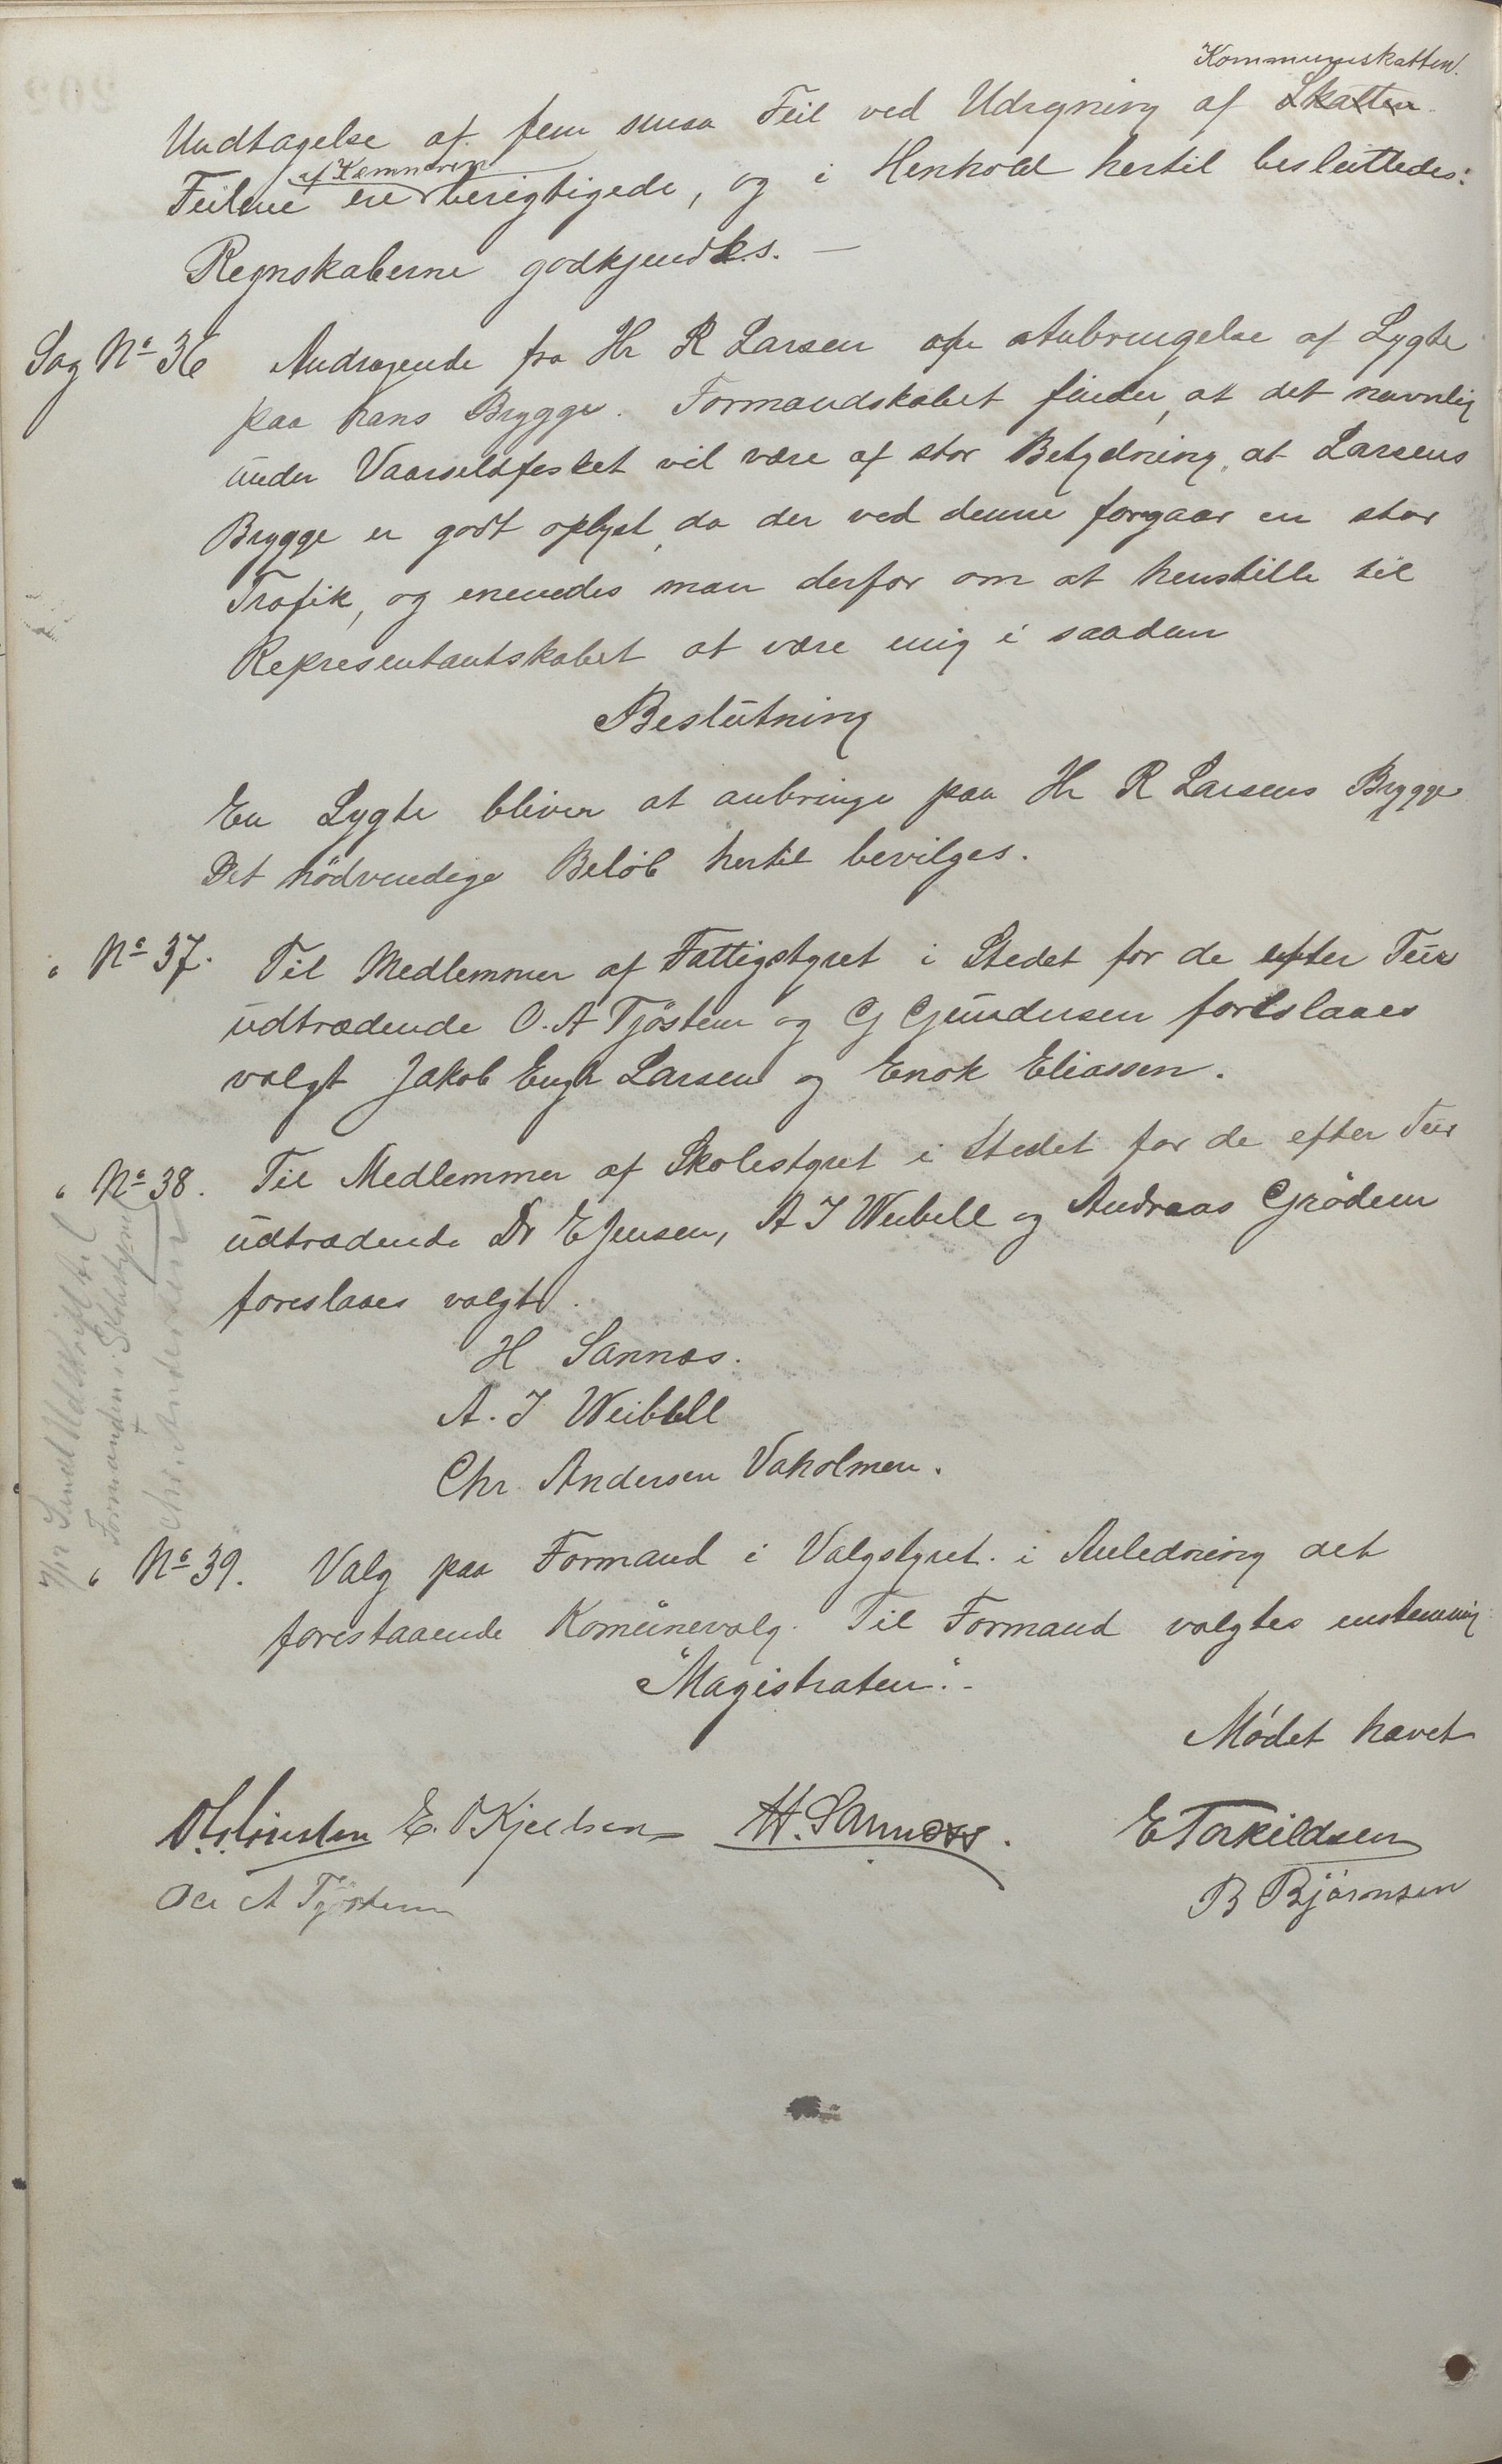 Kommuneskatten.
Undtagelse af fem smaa Feil ved Udregning af Skatten
af Kemneren
Feilene ere berigtigede, og i Henhold hertil besluttedes:
Regnskaberne godkjendtes. —
Sag No 36 Andragende fra Hr R Larsen om Anbringelse af Lygte
paa hans Brygge. Formandskabet finder, at det navnlig
under Vaarsildfisket vil være af stor Betydning, at Larsens
Brygge er godt oplyst, da der ved denne foregaar en stor
Trafik, og enedes man derfor om at henstille til
Representantskabet at være enig i saadan
Beslutning
En Lygte bliver at anbringe paa Hr R Larsens Brygge
Det nödvendige Beløb hertil bevilges.
" No 37. Til Medlemmer af Fattigstyret i Stedet for de efter Tur
udtrædende O. A Tjöstem og G Gundersen foreslaaes
valgt Jakob Engh Larsen og Enok Eliassen.
" No 38. Til Medlemmer af Skolestyret i Stedet for de efter Tur
udtrædende Dr E Jensen, A J Weibell og Andreas Grödem
foreslaaes valgt.
H Sannes.
A. J Weibell
Chr. Andersen Vaholmen.
Sendt Udskrift til
Formanden i Skolestyret
Chr. Andersen
" No 39. Valg paa Formand i Valgstyret i Anledning det
forestaaende Komünevalg. Til Formand valgtes enstemmig
"Magistraten".-
Mödet hævet
E. Kjeldsen H. Sannes. E Torkildsen
A Tjöstem B Bjørnsen